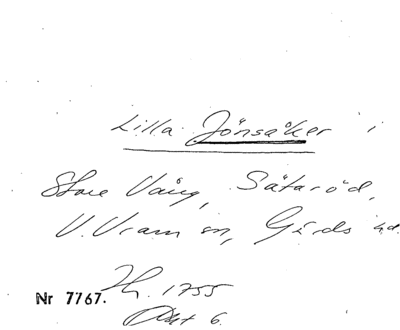 Lilla Jönsåker i
Store Vång, Sätaröd,
V. Vram sn, Gärds hd.
Nr 7767. Th. 1755
Akt 6.